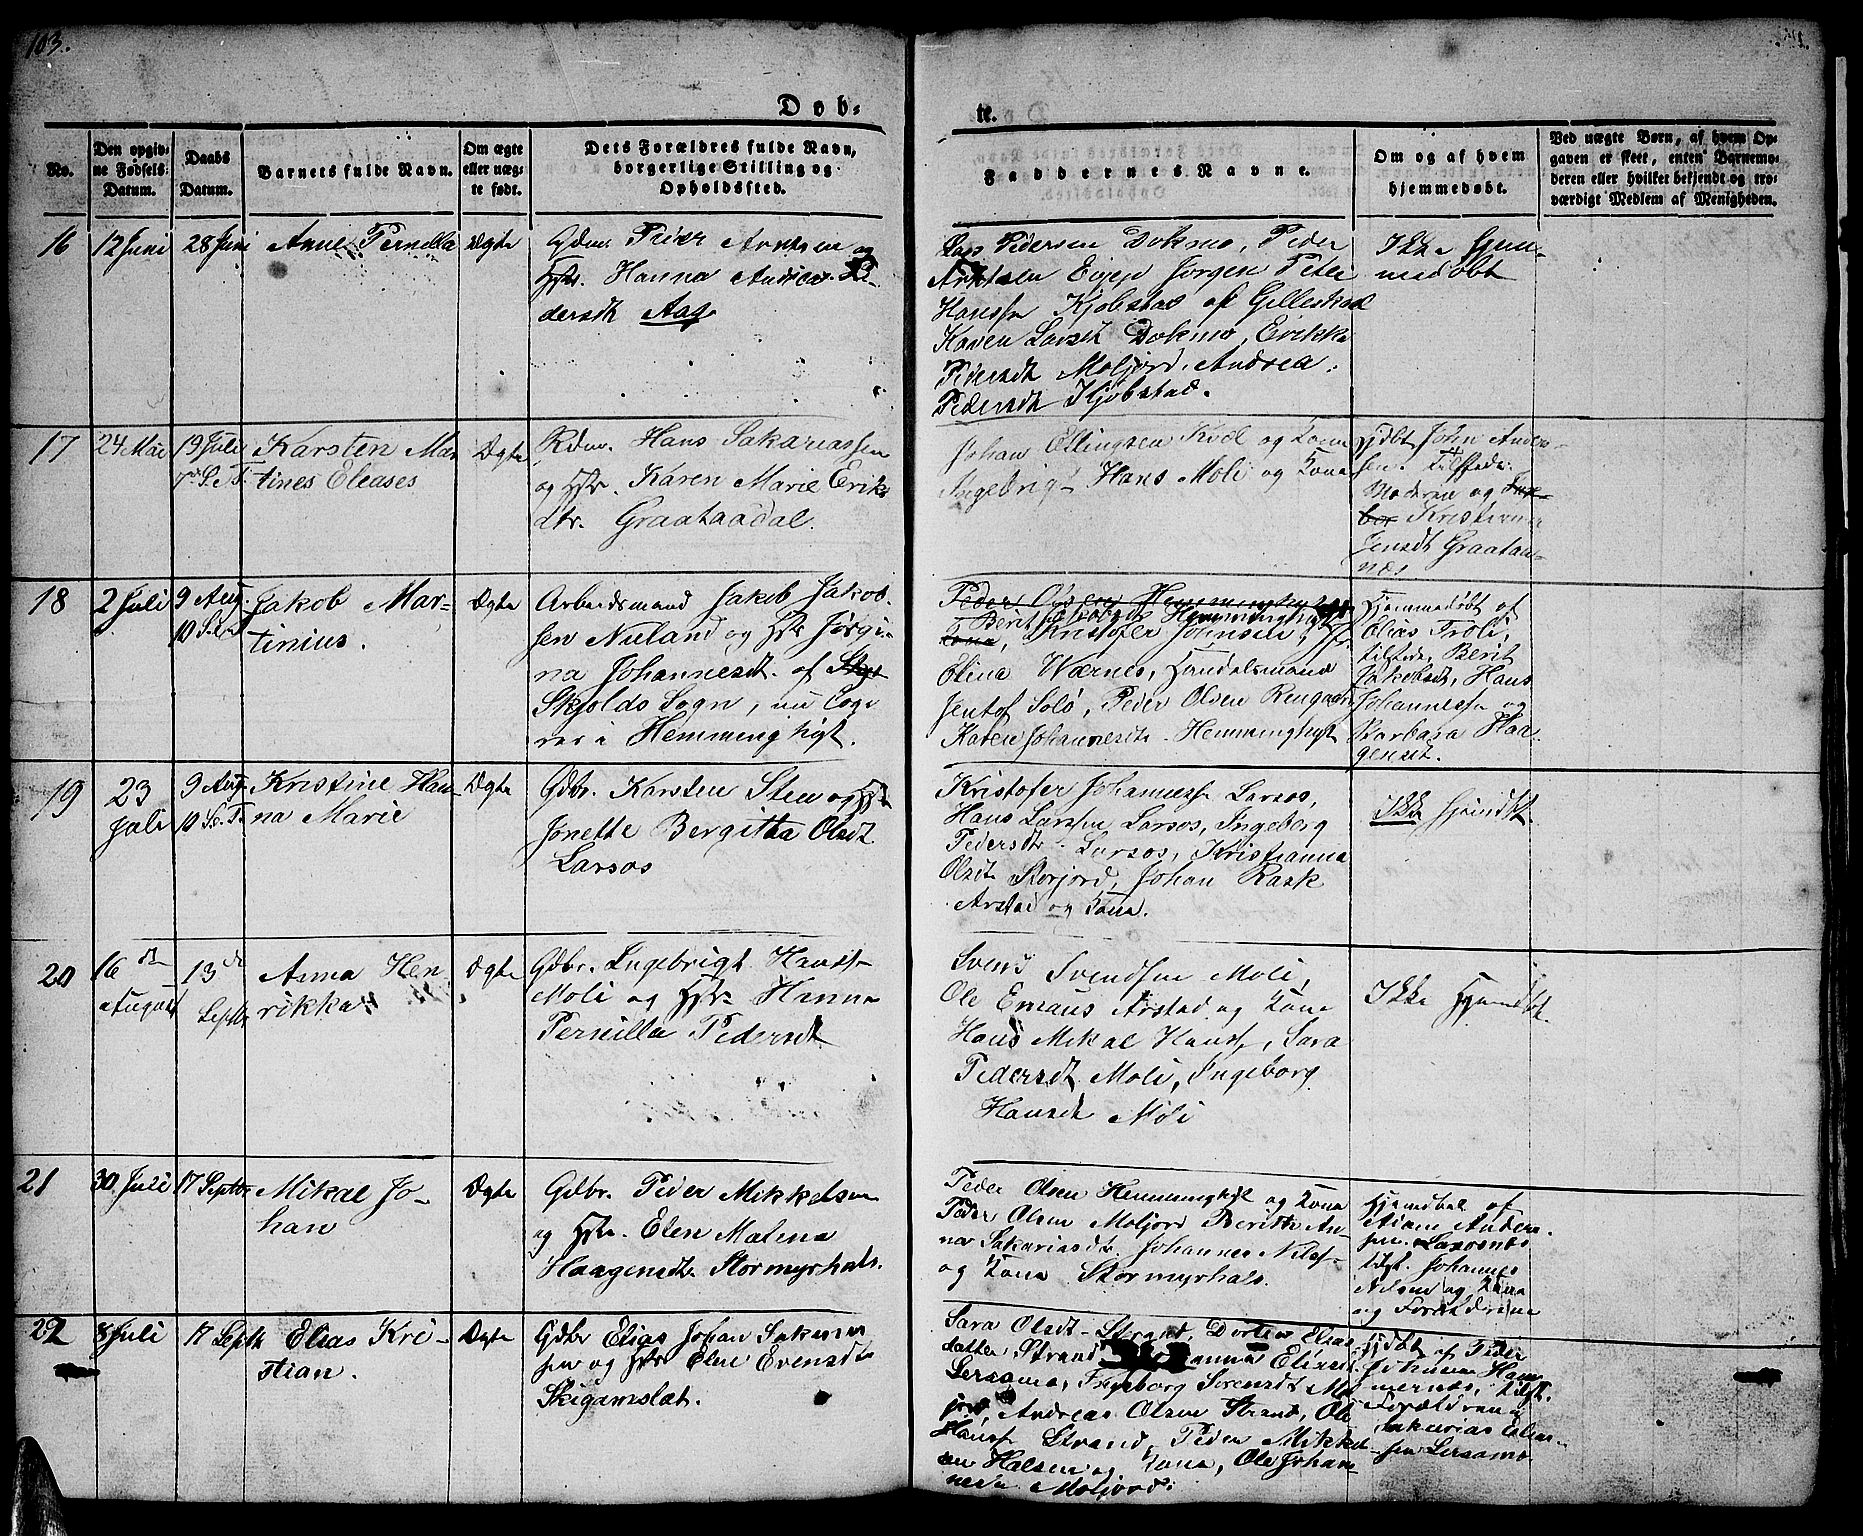 103.
Døb-
No.
Den opgiv-
ne Fødsels-
Datum.
Daabs
Datum.
Barnets fulde Navn.
Om ægte
eller uæg-
te født.
Dets Forældres fulde Navn,
borgerlige Stilling og
Opholdssted.
te.
Faddernes Navne.
Om og af hvem
hjemmedøbt.
Ved uægte Børn, af hvem Op-
gaven er skeet, enten Barnemo-
deren eller hvilket bekjendt og tro-
værdigt Medlem af Menigheden.
16
12 Juni
28 Juni
Anne Pernilla
Ægte
Peder
Hstr. Hanna Andrea Pe-
dersdt Aag
Lars Pedersen Dokmo, Peder
Arntsen Ejgep Jørgen Peter
Hanss Kjobstad af Gilleskaal
Karen Larsdt Dokmo, Erikka
Pedersdt Moljord. Andrea
Pedersdt Kjobstad.
Ikke Hjem-
medøbt
17
24 Mai
19 Juli
7 S. e. T.
Karsten Mar
tines Eleases
Ægte
Hans Sakariassen
og Hstr. Karen Marie Eriks
dtr. Graataadal.
Johan Ellingsen Kvæl og Kona
Ingebrigt Hans Moli og Kona
Hjdbt John Ander-
sen. Tilstede:
Moderen og
Kristianna
Jensdt Graatan-
næs
18
2 Juli
9 Aug.
10 S. e. T
Jakob Mar-
tinius.
Ægte
Arbeidsmand Jakob Jakob-
sen Nuland og Hstr Jørgi-
na Johannesdt. af
Skjolds Sogn, nu Loge-
rer i Hemminghigt.
Peder Olsen Hemminghigt
Berit Jakobsdt Hemminghigt
Kona, Kristofer Johnsen
Elina Wærnes, Handelsmand
Jentof Solø, Peder Olsen Rengaard
Karen Johannesdt. Hemminghigt
Hjemmedøbt af
Elias Troli,
tilstede, Berit
Jakobsdt, Hans
Johanness og
Barbara Haa-
gensdt.
19
23
Juli
9 Aug.
10 S. e. T.
Kristine Han-
na Marie
Ægte
Gdbr. Karsten Sten og Hstr
Jonette Bergitta Olsdt
Larsos
Kristofer Johanness Larsos,
Hans Larssen Larsos, Ingeborg
Pedersdt Larsos, Kristianna
Olsdt Storjord, Johan Rask
Arstad og Kona.
Ikke Hjemdbt
20
16 de
August
13 de
Septbr
Anna Hen
rikka
Ægte
Gdbr. Ingebrigt Hanss
Moli og Hstr Hanna
Pernilla Pedersdt
Svens Svendsen Moli,
Ole Emaus Arstad og Kona
Hans Mikal Hanss, Sara
Pedersdt Moli, Ingeborg
Hansdt Moli
Ikke Hjemdbt.
21
30 Juli
17 Septbr
Mikal Jo-
han
Ægte
Gdbr. Peder Mikkelsen
og Hstr. Elen Matena
Haagensdt Stormyrhals.
Peder Olsen Hemminghigt og Kona
Peder Olsen Moljord Berith An-
na Sakariasdt. Johannes Nilss
og Kona Stormyrhals.
Hjemdbt af
Anders-
sen. Larsosnes
tilst. Johannes
Nilsen og Kona
og Forældrene
22
8 Juli
17 Septbr
Elias Kri-
stian.
Ægte
Gdbr Elias Johan Sakarias
sen og Hstr Elen Evensdt
Skigamslæt.
Sara Olsdt Strand, Dortea Elias
datter Strand Eliasdt
Lersamo, Ingeborg Sorensdt Mol
jord, Andreas Olsen Strand, Ole
Hanss Strand, Peder Mikkel-
sen Halsen og Kona, Ole Johan-
nesen Moljord.
Hjdbt af Peder
Johannsen Ham-
mernes, tilst.
Forældrene og
Sakarias Elias-
sen Lersamo